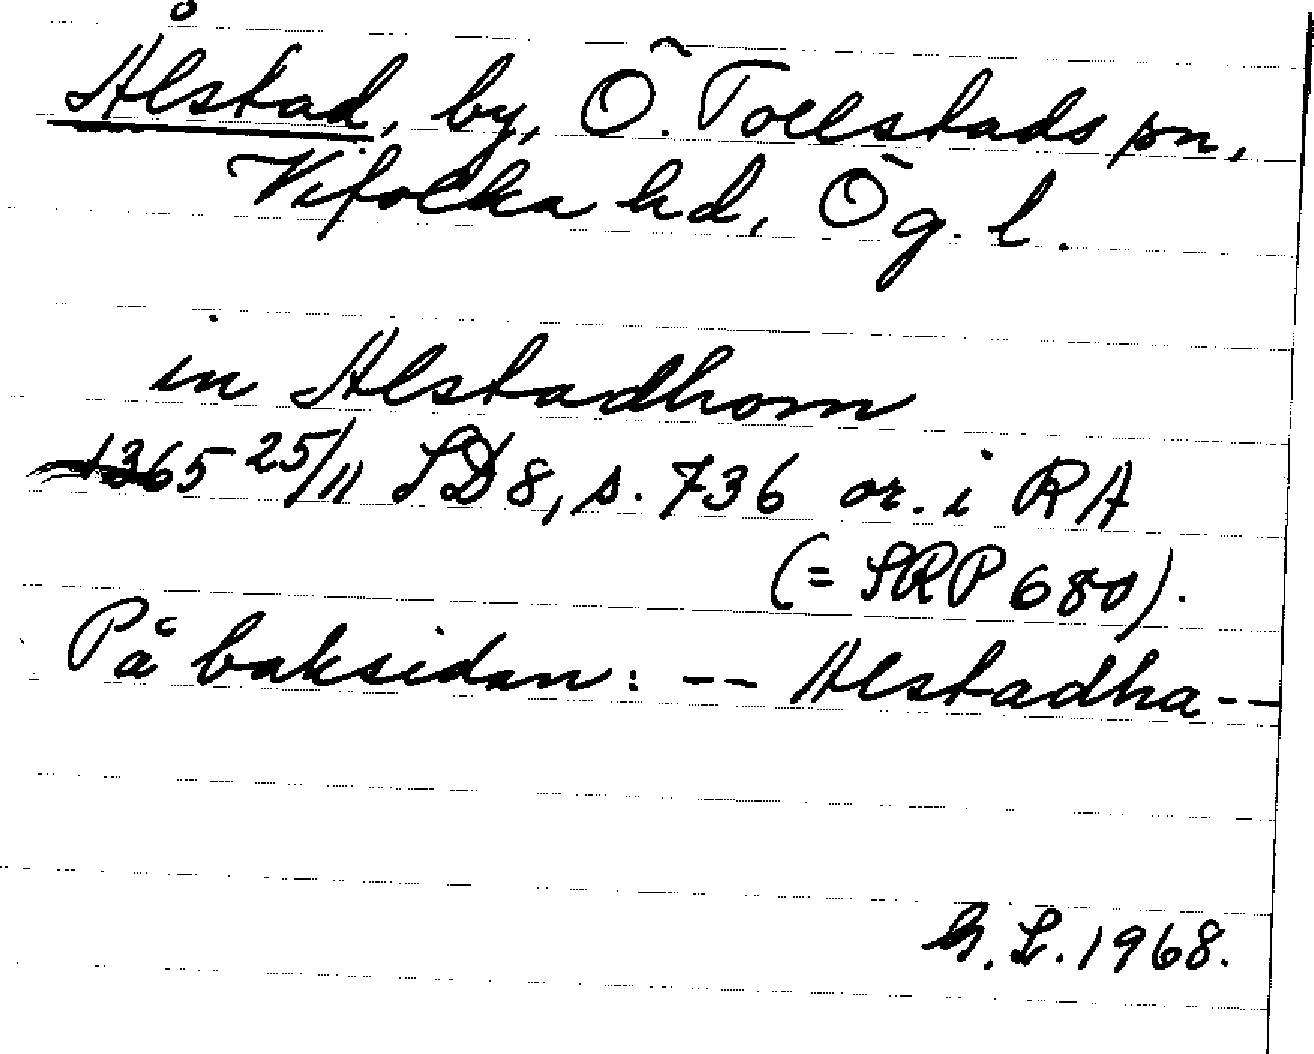 Ålstad, by, Ö. Tollstads sn,
Vifolka hd, Ög. l.
in Alstadhom
1365 25/11 SD 8, s. 736 or. i RA
(= SRP 680).
På baksidan: -- Alstadha --
G. L. 1968.